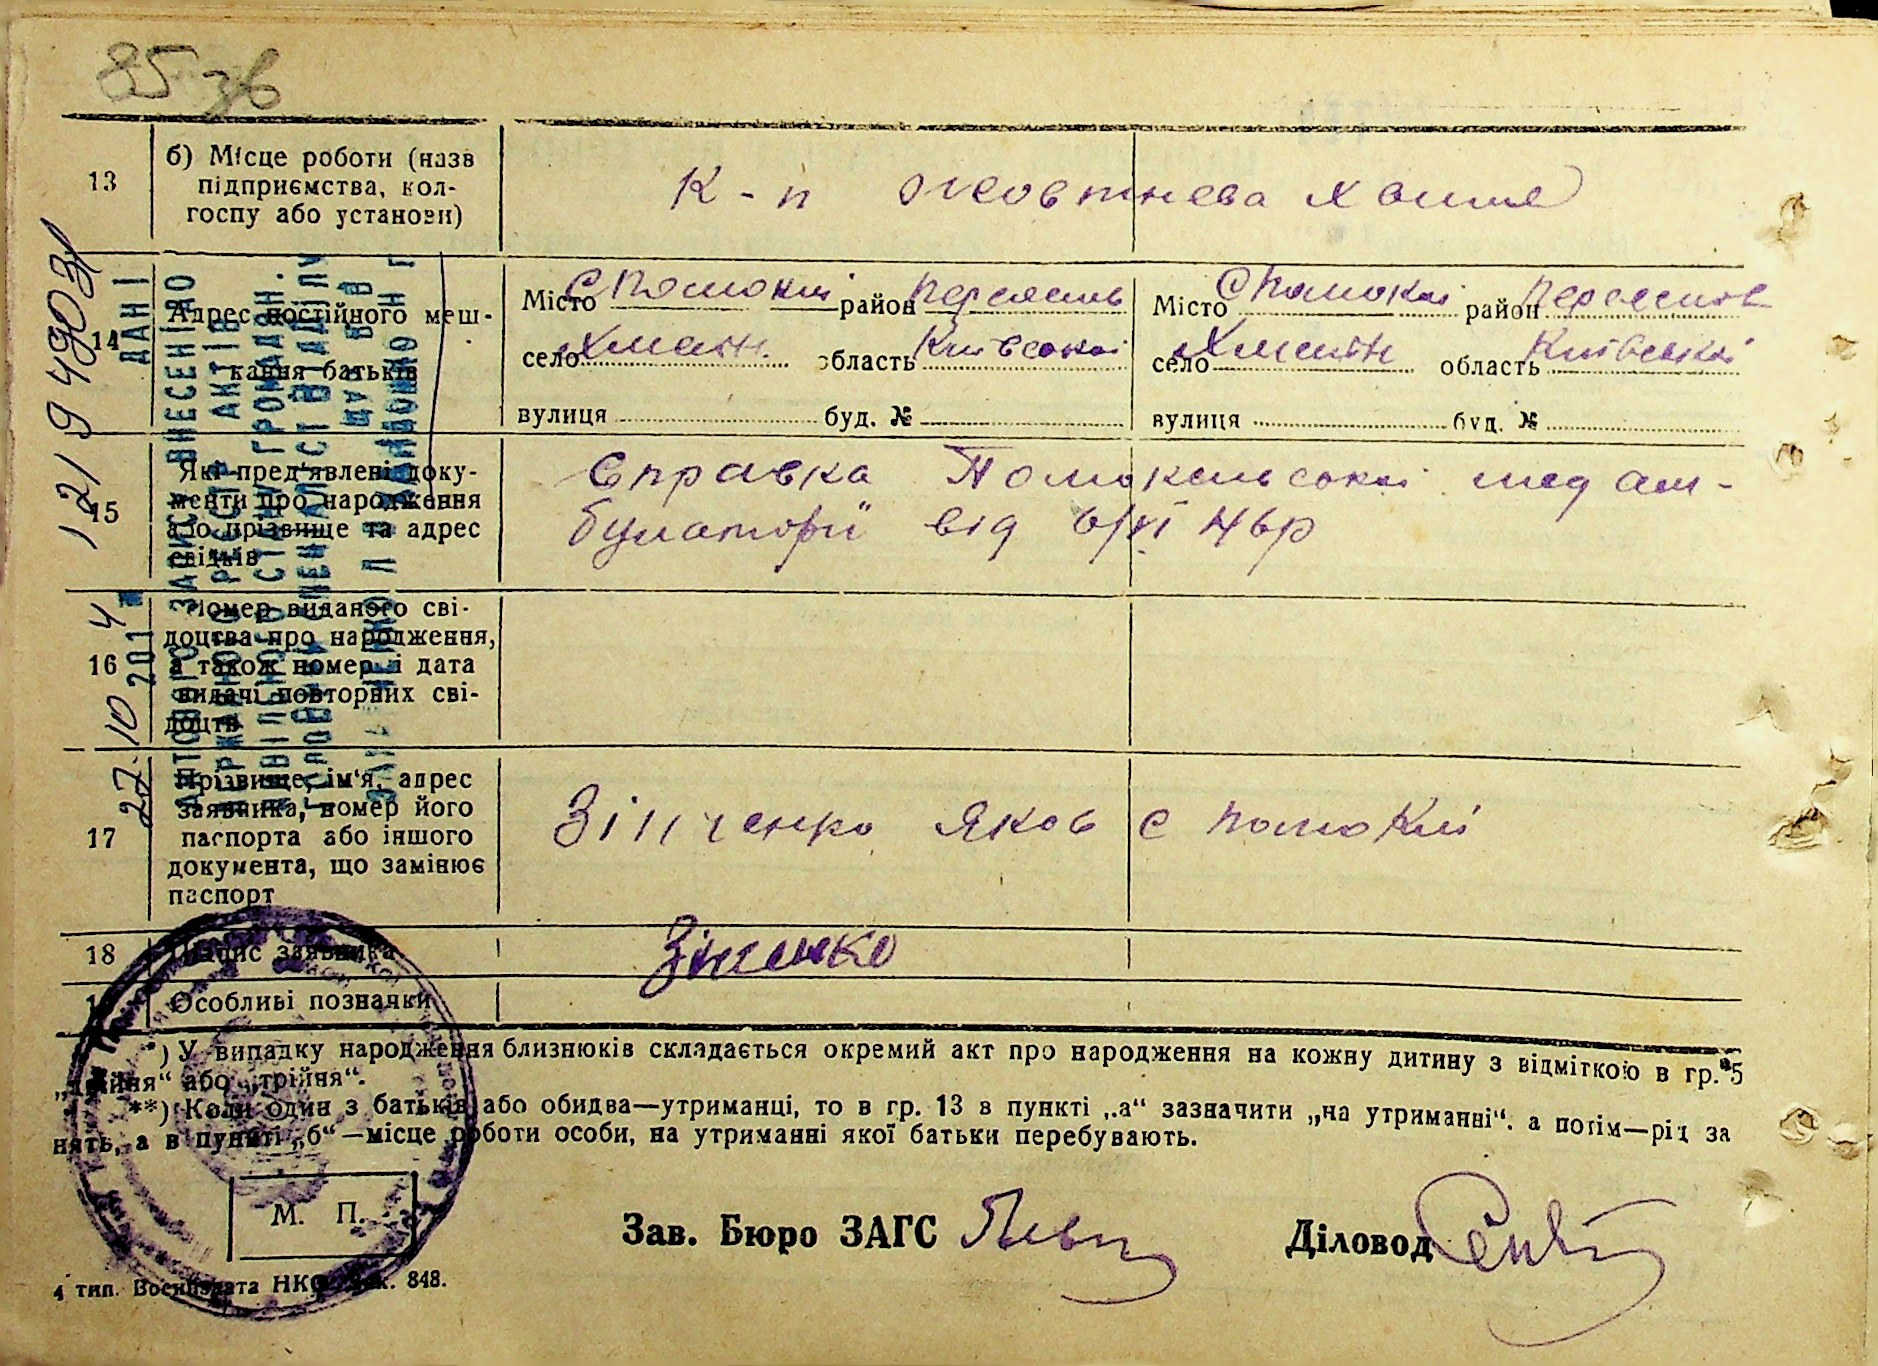 85 зв
13
б) Місце роботи (назв
підприємства, кол-
госпу або установи)
К-п Жовтнева хвиля
14
Адрес постійного меш-
кання батьків
Місто с Помоклі район Переяслав
село Хмельн. область Київської
вулиця буд. №
Місто с Помоклі район Переяслов
село Хмельн область Київської
вулиця буд. №
15
Які пред'явлені доку-
менти про народження
або прізвище та адрес
свідків
Справка Помокельської мед ам-
булаторії від 6/VI 46р
16
Номер виданого сві-
доцтва про народження,
а також номер і дата
видачі повторних сві-
доцтв
17
Прізвище, ім'я, адрес
заявника, номер його
паспорта або іншого
документа, що замінює
паспорт
Зінченко Яков с Помоклі
18
Підпис заявника
Зінченко
19
Особливі позначки
*) У випадку народження близнюків складається окремий акт про народження на кожну дитину з відміткою в гр. 5
„двійня“ або „трійня“.
**) Коли один з батьків або обидва—утриманці, то в гр. 13 в пункті „а“ зазначити „на утриманні“. а потім—рід за
нять, а в пункті „б“—місце роботи особи, на утриманні якої батьки перебувають.
М. П.
Зав. Бюро ЗАГС
Діловод
4 тип. Воениздата НКО Зак. 848.
ДАНІ
ВНЕСЕНІ ДО
27 10 2014